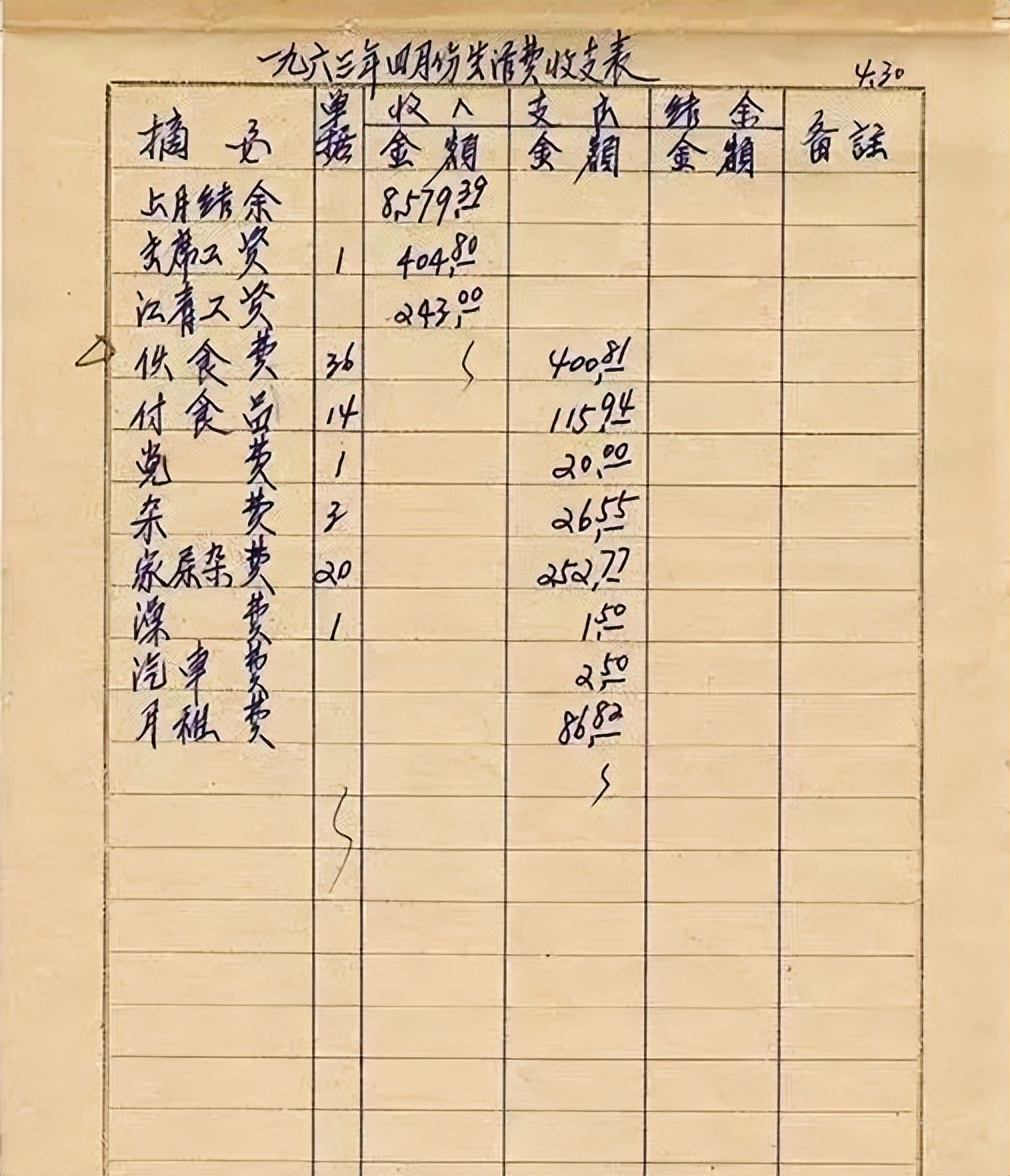 一九六三年四月份生活费收支表
4.30
摘要 单据 收入金额 支出金额 结余金额 备註
上月结余 8,579.39
主席工资 1 404.80
江青工资 243.00
伙食费 36 400.81
付食品 14 115.94
党费 1 20.00
杂费 3 26.55
家属杂费 20 252.77
澡费 1 1.50
汽车费 2.50
月租费 86.82